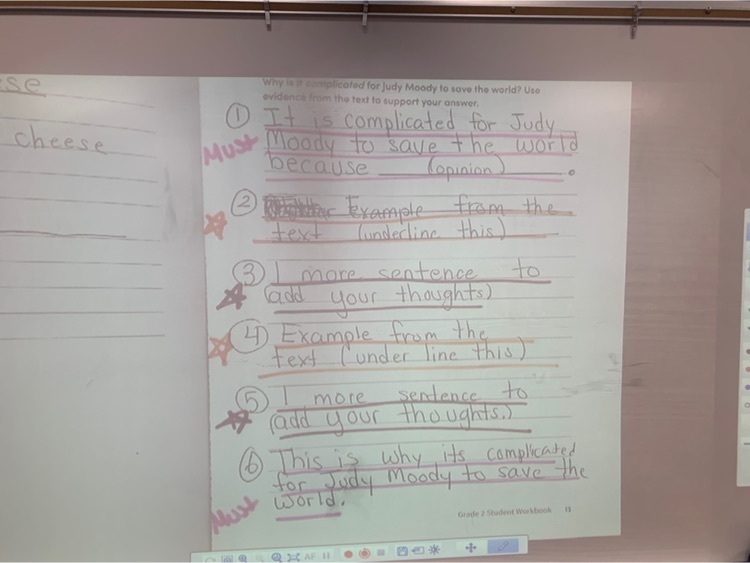 se
cheese
Why is it complicated for Judy Moody to save the world? Use
evidence from the text to support your answer.
① It is complicated for Judy
Must Moody to save the world
because ____ (opinion) ____.
② Example from the
text (underline this)
③ 1 more sentence to
(add your thoughts)
④ Example from the
text (under line this)
⑤ 1 more sentence to
(add your thoughts.)
⑥ This is why its complicated
for Judy Moody to save the
Must world.
Grade 2 Student Workbook 15
AF